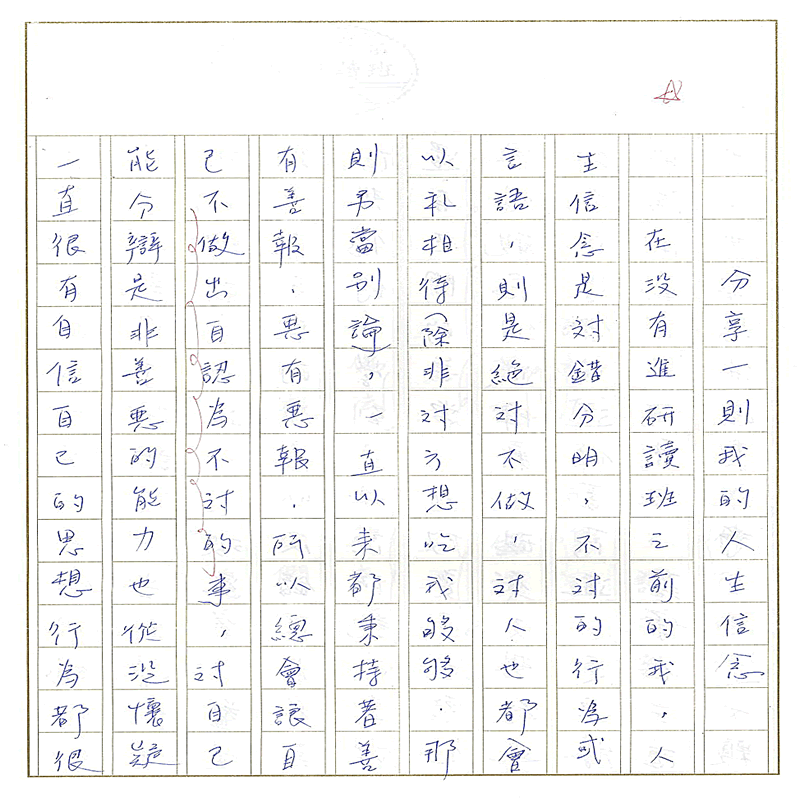 分享一則我的人生信念
在没有進研讀班之前的我，人
生信念是对錯分明，不对的行為或
言語，則是絕对不做，对人也都會
以礼相待(除非对方想吃我够够．那
則另當別論)，一直以来都秉持著善
有善報．惡有惡報．所以總會讓自
己不做出自認為不討的事，討自己
能分辯是非善惡的能力也從沒懷疑
一直很有自信自己的思想行為都很